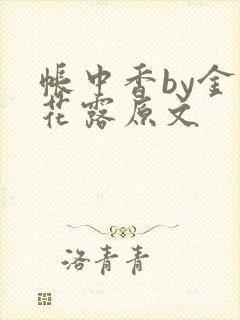 帐中香by金
花露原文
洛青青